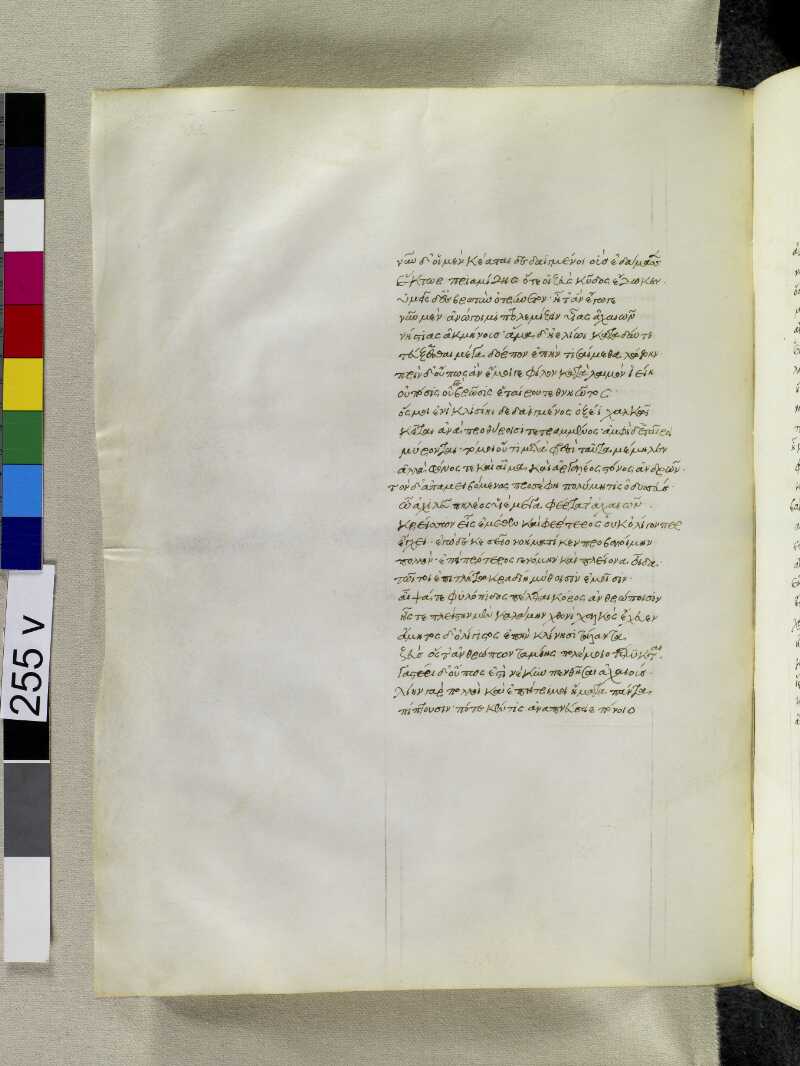 νῦν δ' οἱ μὲν κέαται δεδαϊγμένοι οὓς ἐδάμασσεν
Ἕκτωρ πριαμίδης ὅτε οἱ Ζεὺς κῦδος ἔδωκεν·
ὑμεῖς δ' ἐς βρωτὺν ὀτρύνετον· ἦ τ' ἂν ἔγωγε
νῦν μὲν ἀνώγοιμι πτολεμίζειν υἷας ἀχαιῶν
νήστιας ἀκμήνους ἅμα δ' ἠελίωι καταδύντι
τεύξεσθαι μέγα δόρπον ἐπὴν τισαίμεθα λώβην·
πρὶν δ' οὔπως ἂν ἔμοιγε φίλον κατὰ λαιμὸν ἰείη
οὐ πόσις οὐδὲ βρῶσις ἑταίρου τεθνηῶτος·
ὅς μοι ἐνὶ κλισίηι δεδαϊγμένος ὀξέϊ χαλκῶι
κεῖται ἀνὰ προθύροισι τετραμμένος· ἀμφὶ δ' ἑταῖροι
μύρονται· τό μοι οὔτι μετὰ φρεσὶ ταῦτα μέμηλεν
ἀλλὰ φόνος τε καὶ αἷμα καὶ ἀργαλέος στόνος ἀνδρῶν·
τὸν δ' ἀπαμειβόμενος προσέφη πολύμητις ὀδυσσεύς·
ὦ ἀχιλεῦ πηλέος υἱὲ μέγα φέρτατ' ἀχαιῶν·
κρείσσων εἰς ἐμέθεν καὶ φέρτερος οὐκ ὀλίγον περ
ἔγχει· ἐγὼ δέ κε σεῖο νοήματί κεν προβαλοίμην
πολλὸν· ἐπεὶ πρότερος γενόμην καὶ πλείονα οἶδα·
τῶ τοι ἐπιτλήτω κραδίη μύθοισιν ἐμοῖσιν·
αἶψά τε φυλόπιδος πέλεται κόρος ἀνθρώποισιν
ἧς τε πλείστην μὲν καλάμην χθονὶ χαλκὸς ἔχευεν
ἄμητος δ' ὀλίγιστος ἐπὴν κλίνησι τάλαντα
Ζεὺς ὅς τ' ἀνθρώπων ταμίης πολέμοιο τέτυκται·
γαστέρι δ' οὔπως ἔστι νέκυν πενθῆσαι ἀχαιούς·
λίην γὰρ πολλοὶ καὶ ἐπήτριμοι ἤματα πάντα
πίπτουσιν· πότε κέν τις ἀναπνεύσειε πόνοιο